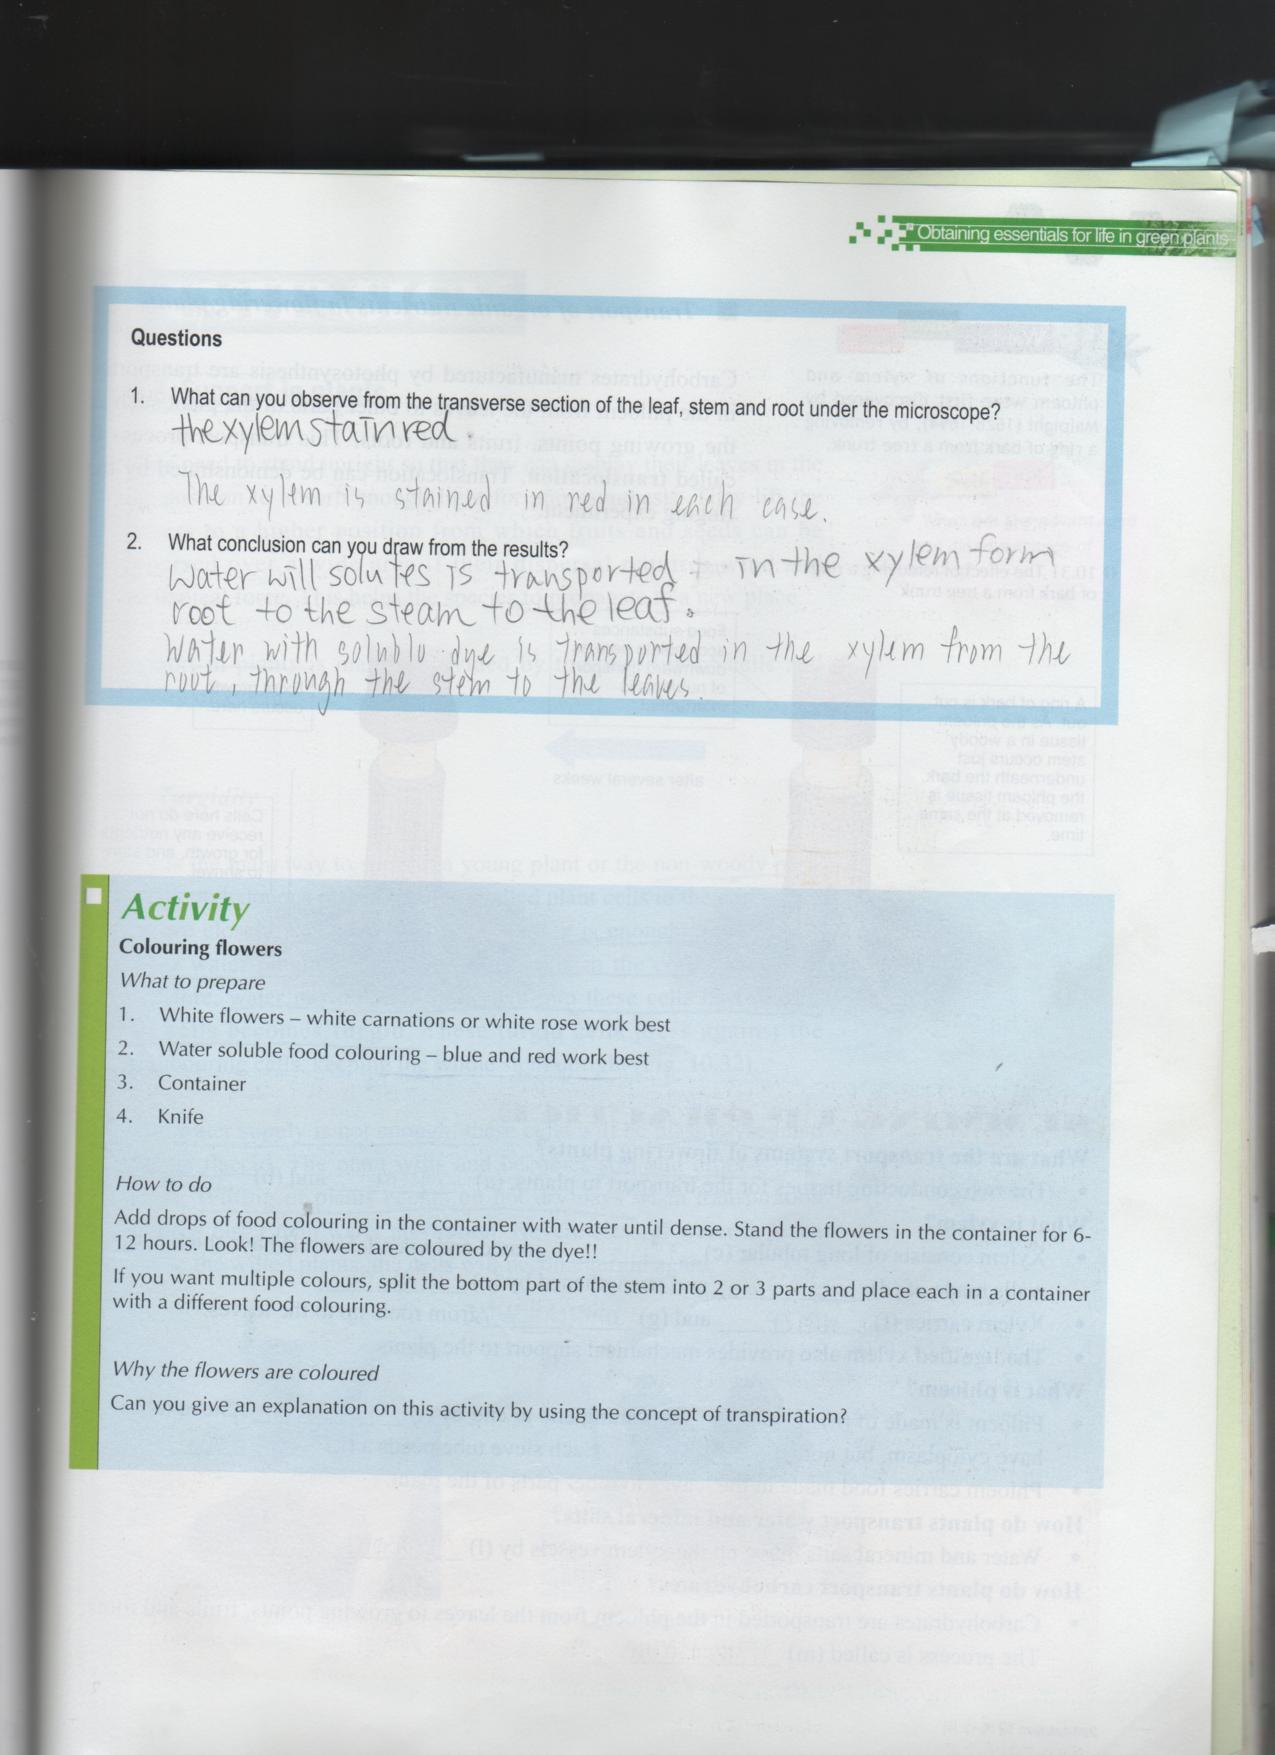 Obtaining essentials for life in green plants
Questions
1. What can you observe from the transverse section of the leaf, stem and root under the microscope?
the xylem stain red.
The xylem is stained in red in each case.
2. What conclusion can you draw from the results?
Water will solutes is transported in the xylem form
root to the steam to the leaf.
Water with solublu dye is transported in the xylem from the
root, through the stem to the leaves.
Activity
Colouring flowers
What to prepare
1. White flowers – white carnations or white rose work best
2. Water soluble food colouring – blue and red work best
3. Container
4. Knife
How to do
Add drops of food colouring in the container with water until dense. Stand the flowers in the container for 6-
12 hours. Look! The flowers are coloured by the dye!!
If you want multiple colours, split the bottom part of the stem into 2 or 3 parts and place each in a container
with a different food colouring.
Why the flowers are coloured
Can you give an explanation on this activity by using the concept of transpiration?